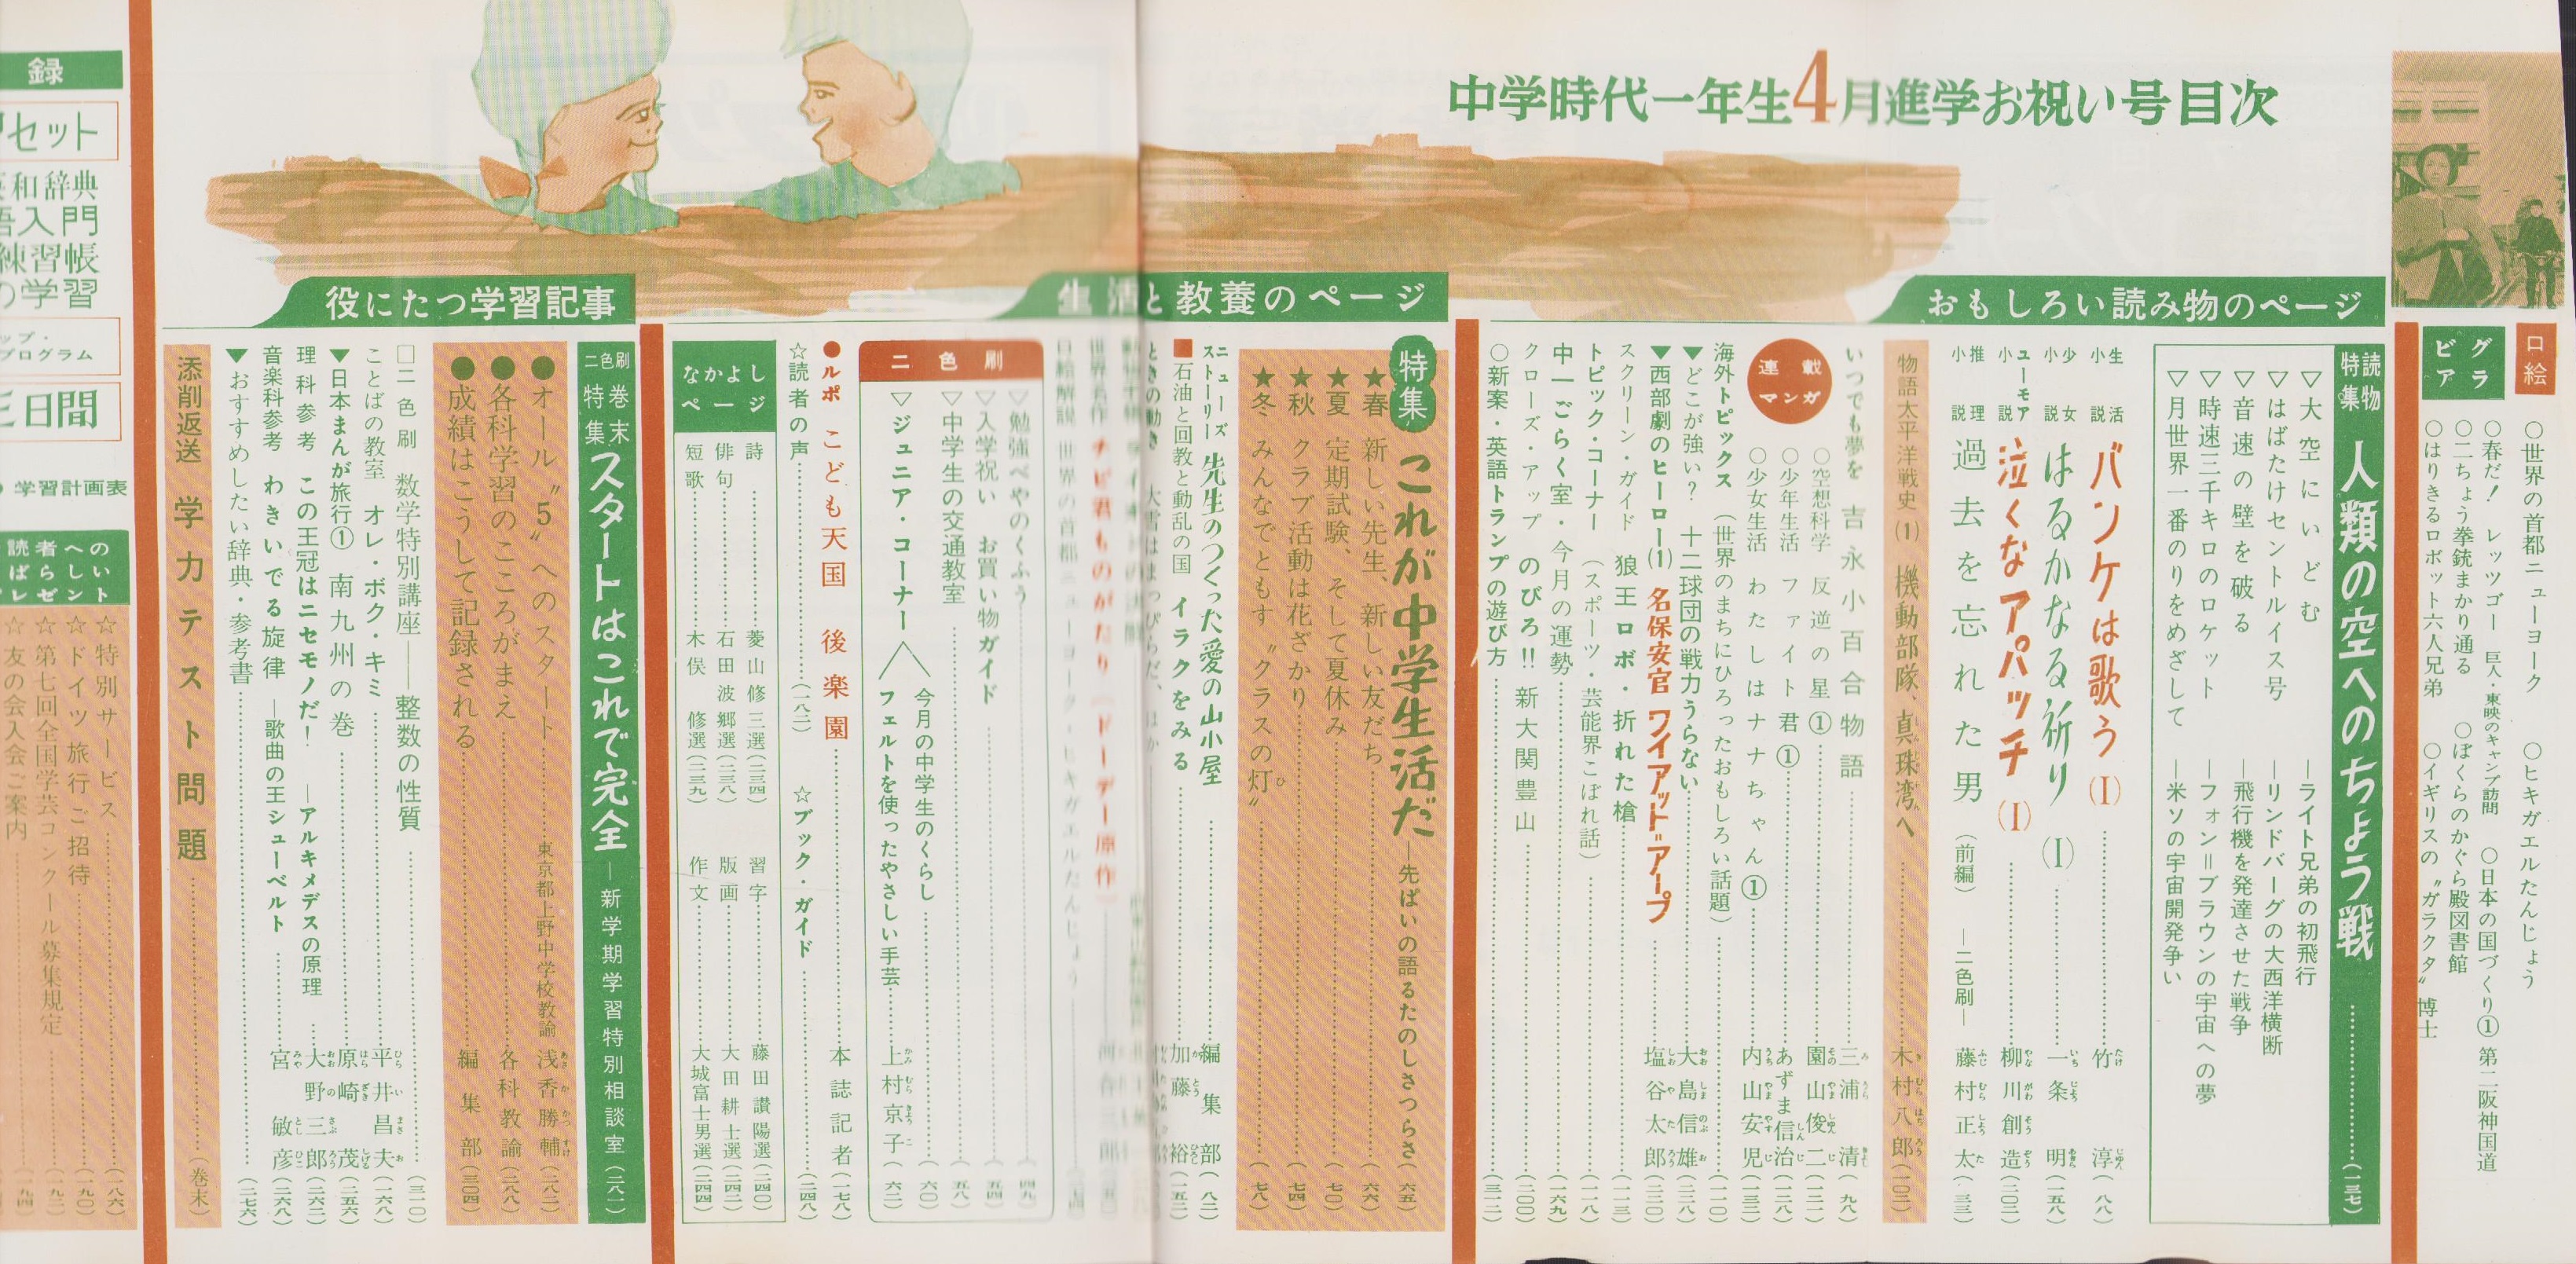 中学時代一年生4月進学お祝い号目次
口絵
○世界の首都ニューヨーク ○ヒキガエルたんじょう
グラビア
○春だ! レッツゴー 巨人・東映のキャンプ訪問 ○日本の国づくり① 第二阪神国道
○二ちょう拳銃まかり通る ○ぼくらのかぐら殿図書館
○はりきるロボット六人兄弟 ○イギリスの〝ガラクタ〟博士
おもしろい読み物のページ
読物特集 人類の空へのちょう戦 (一三七)
▽大空にいどむ ―ライト兄弟の初飛行
▽はばたけセントルイス号 ―リンドバーグの大西洋横断
▽音速の壁を破る ―飛行機を発達させた戦争
▽時速三千キロのロケット ―フォン=ブラウンの宇宙への夢
▽月世界一番のりをめざして ―米ソの宇宙開発争い
生活小説 バンケは歌う(1) 竹 淳(八八)
少女小説 はるかなる祈り(1) 一条 明(一五八)
ユーモア小説 泣くなアパッチ(1) 柳川創造(二〇二)
推理小説 過去を忘れた男(前編)―二色刷― 藤村正太(一三三)
物語太平洋戦史(1) 機動部隊、真珠湾へ 木村八郎(一〇二)
いつでも夢を 吉永小百合物語 三浦 清(九八)
連載マンガ
○空想科学 反逆の星① 園山俊二(一二一)
○少年生活 ファイト君① あずま信治(一二八)
○少女生活 わたしはナナちゃん① 内山安児(一三三)
海外トピックス(世界のまちにひろったおもしろい話題)(一一〇)
▼どこが強い? 十二球団の戦力うらない 大島信雄(二二八)
▼西部劇のヒーロー(1) 名保安官 ワイアット゠アープ 塩谷太郎(二二〇)
スクリーン・ガイド 狼王ロボ・折れた槍(一一三)
トピック・コーナー(スポーツ・芸能界こぼれ話)(一一八)
中一ごらく室・今月の運勢(一六九)
クローズ・アップ のびろ!! 新大関豊山(二〇〇)
○新案・英語トランプの遊び方(三一二)
生活と教養のページ
特集 これが中学生活だ―先ぱいの語るたのしさつらさ(六五)
★春 新しい先生、新しい友だち(六六)
★夏 定期試験、そして夏休み(七〇)
★秋 クラブ活動は花ざかり(七四)
★冬 みんなでともす〝クラスの灯〟(七八)
ニュースストーリー 先生のつくった愛の山小屋 編集部(八二)
■石油と回教と動乱の国 イラクをみる 加藤 裕(一五二)
ときの動き 大雪はまっぴらだ、ほか
世界名作 チビ君ものがたり(ドーデー原作)
口絵解説 世界の首都ニューヨーク・ヒキガエルたんじょう
二色刷
▽勉強べやのくふう(四九)
▽入学祝い お買い物ガイド(五四)
▽中学生の交通教室(五八)
▽ジュニア・コーナー
今月の中学生のくらし(六〇)
フェルトを使ったやさしい手芸 上村京子(六二)
●ルポ こども天国 後楽園 本誌記者(一七八)
☆読者の声(一八二) ☆ブック・ガイド(二四八)
なかよしページ
詩 菱山修三選(二三四) 習字 藤田讃陽選(二四〇)
俳句 石田波郷選(二三八) 版画 大田耕士選(二四二)
短歌 木俣 修選(二三九) 作文 大城富士男選(二四四)
役にたつ学習記事
二色刷 巻末特集 スタートはこれで完全―新学期学習特別相談室(二八一)
●オール〝5〟へのスタート 東京都上野中学校教諭 浅香勝輔(二八二)
●各科学習のこころがまえ 各科教諭(二八八)
●成績はこうして記録される 編集部(三〇四)
□二色刷 数学特別講座―整数の性質(三一〇)
ことばの教室 オレ・ボク・キミ 平井昌夫(一六八)
▼日本まんが旅行① 南九州の巻 原崎 茂(二五六)
理科参考 この王冠はニセモノだ! ―アルキメデスの原理 大野三郎(二六二)
音楽科参考 わきいでる旋律 ―歌曲の王シューベルト 宮 敏彦(二六八)
▼おすすめしたい辞典・参考書(二七六)
添削返送 学力テスト問題(巻末)
録
セット
和辞典
入門
練習帳
の学習
プログラム
三日間
学習計画表
読者への
ばらしい
レゼント
☆特別サービス(一八六)
☆ドイツ旅行ご招待(一九〇)
☆第七回全国学芸コンクール募集規定(一九二)
☆友の会入会ご案内